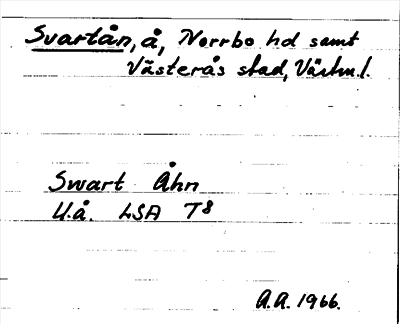 Svartån, å, Norrbo hd samt
Västerås stad, Västm.l.
Swart Åhn
U.å. LSA T8
A.A. 1966.